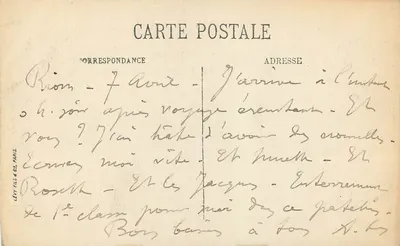 CARTE POSTALE
CORRESPONDANCE
ADRESSE
Riom - 7 Avril - J'arrive à l'instant
après voyage éreintant - Et
vous ? J'ai hâte d'avoir des nouvelles -
Ecrivez moi vite - Et - Et
- Et les Jacques - Enterrement
de 1e classe pour moi dès ce
Bons à tous
LÉVY FILS & Cie, PARIS